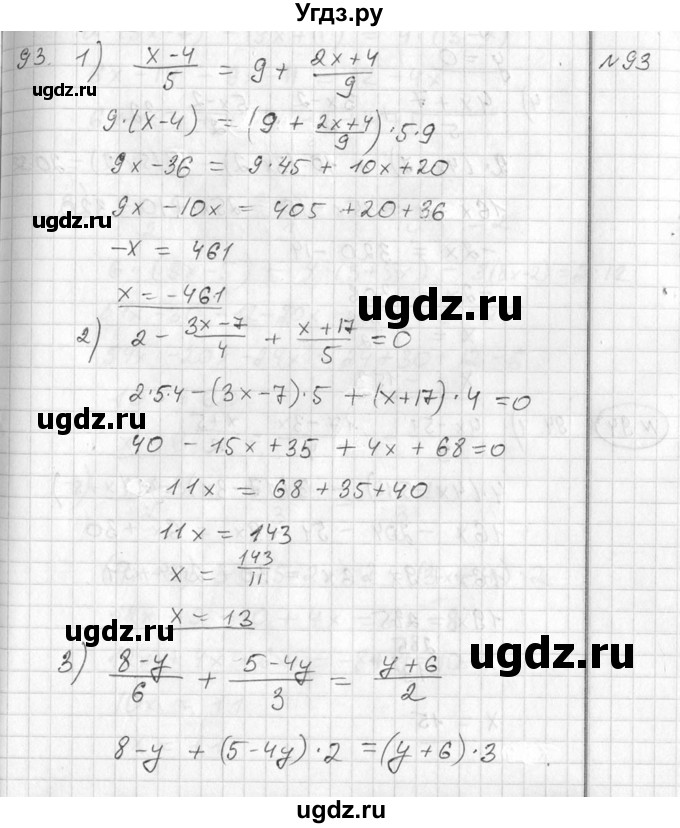 Угдз.ру
93. 1) (x-4)/5 = 9 + (2x+4)/9
№93
gdz.ru
9·(x-4) = (9 + (2x+4)/9)·5·9
9x-36 = 9·45 + 10x+20
9x -10x = 405 +20+36
gdz.ru
-x = 461
x = -461
ugdz.ru
2) 2 - (3x-7)/4 + (x+17)/5 = 0
2·5·4-(3x-7)·5 + (x+17)·4 = 0
ugdz.ru
ugdz.ru
40 - 15x+35 + 4x + 68=0
11x = 68+35+40
11x = 143
x = 143/11
x = 13
ugdz.ru
ugdz.ru
3) (8-y)/6 + (5-4y)/3 = (y+6)/2
8-y + (5-4y)·2 = (y+6)·3
ugdz.ru
ugdz.ru